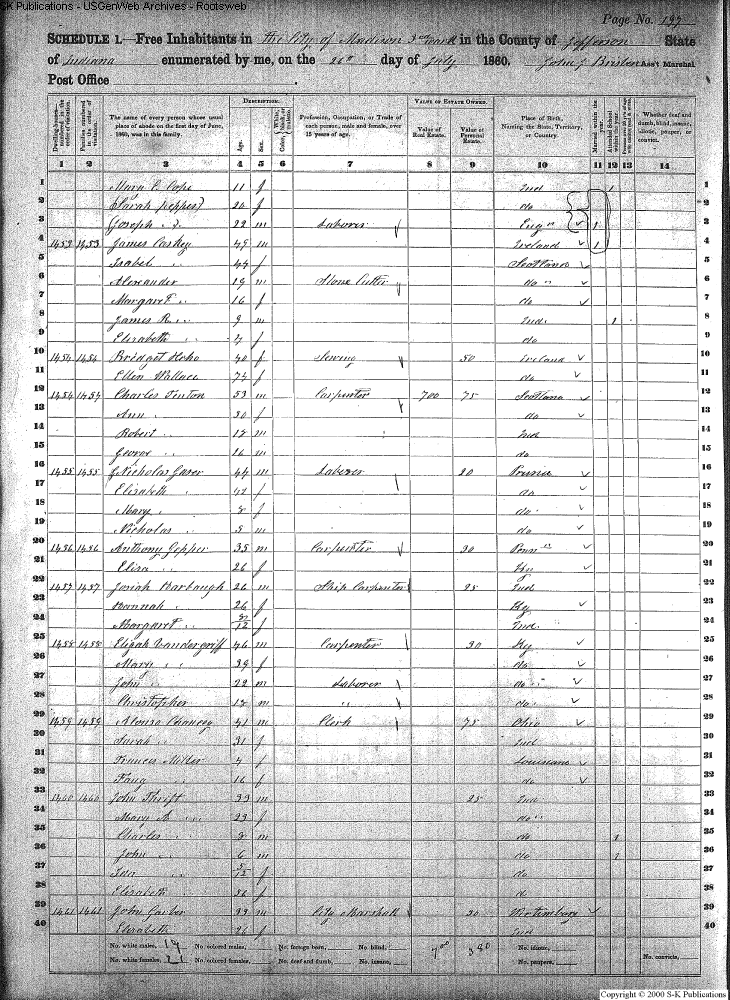 SK Publications - USGenWeb Archives - Rootsweb
Page No. 197
SCHEDULE 1.—Free Inhabitants in The City of Madison 3rd Ward in the County of Jefferson State
of Indiana enumerated by me, on the day of July 1860. John J Ass't Marshal
Post Office
DESCRIPTION. VALUE OF ESTATE OWNED.
Dwelling-houses—numbered in the order of visitation. Families numbered in the order of visitation. The name of every person whose usual place of abode on the first day of June, 1860, was in this family. Age. Sex. Color, White, black, or mulatto. Profession, Occupation, or Trade of each person, male and female, over 15 years of age. Value of Real Estate. Value of Personal Estate. Place of Birth, Naming the State, Territory, or Country. Married within the year. Attended School within the year. Whether deaf and dumb, blind, insane, idiotic, pauper, or convict.
1 2 3 4 5 6 7 8 9 10 11 12 13 14
1 Mary C Cope 11 f Ind 1 1
2 Sarah Pepper 20 f do 2
3 Joseph 22 m Laborer Eng 1 3
4 1453 1453 James Caskey 49 m Ireland 1 4
5 Isabel 44 f Scotland 5
6 Alexander 19 m Stone Cutter do 6
7 Margaret 16 f do 7
8 James R 9 m Ind 1 8
9 Elizabeth 7 f do 9
10 1454 1454 Bridget 40 f Sewing 50 Ireland 10
11 Ellen Wallace 74 f do 11
12 1454 1454 Charles Fenton 53 m Carpenter 700 75 Scotland 12
13 Ann 50 f do 13
14 Robert m Ind 14
15 George 16 m do 15
16 1455 1455 Nicholas 44 m Laborer 20 Prussia 16
17 Elizabeth f do 17
18 Mary 8 f do 18
19 Nicholas 5 m do 19
20 1456 1456 Anthony Gepper 35 m Carpenter 30 Penn 20
21 Eliza 26 f Ky 21
22 1457 1457 Josiah Harbaugh 26 m Ship Carpenter 25 Ind 22
23 Hannah 26 f Ky 23
24 Margaret f Ind 24
25 1458 1458 Elijah Vandergriff 46 m Carpenter 30 Ky 25
26 Mary 39 f do 26
27 John 22 m Laborer do 27
28 Christopher m " do 28
29 1459 1459 Alonzo Chancey 41 m Clerk 75 Ohio 29
30 Sarah 31 f Ind 30
31 Frances Miller 4 f Louisiana 31
32 16 f do 32
33 1460 1460 John Thrift 33 m 25 Ind 33
34 Mary A 29 f do 34
35 Charles 8 m do 1 35
36 John 6 m do 1 36
37 Ida 5/12 f do 37
38 Elizabeth 56 f d 38
39 1461 1461 John Garber 33 m City Marshall 30 Wirtemburg 39
40 Elizabeth 26 f Ind 40
No. white males, 19 No. colored males, No. foreign born, No. blind, 700 380 No. idiotic,
No. white females, 21 No. colored females, No. deaf and dumb, No. insane, No. paupers, No. convicts,
Copyright © 2000 S-K Publications